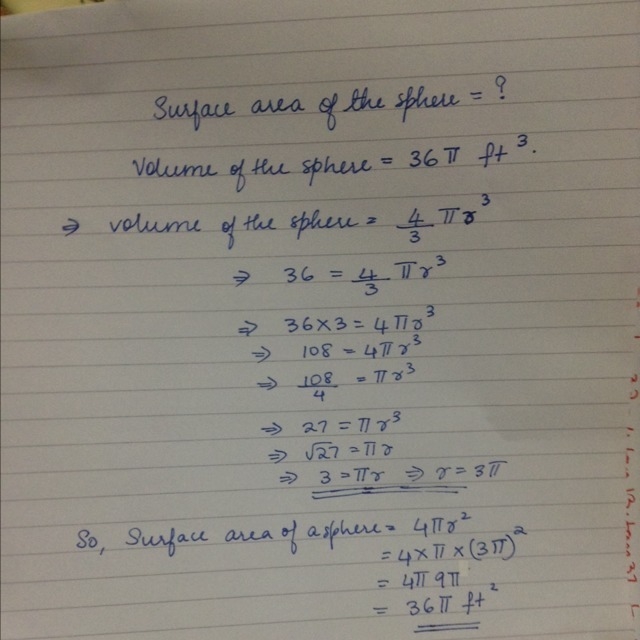 Surface area of the sphere = ?
Volume of the sphere = 36π ft³.
⇒ volume of the sphere = 4/3 πr³
⇒ 36 = 4/3 πr³
⇒ 36×3 = 4πr³
⇒ 108 = 4πr³
⇒ 108/4 = πr³
⇒ 27 = πr³
⇒ √27 = πr
⇒ 3 = πr ⇒ r = 3π
So, Surface area of a sphere = 4πr²
= 4×π×(3π)²
= 4π 9π
= 36π ft²